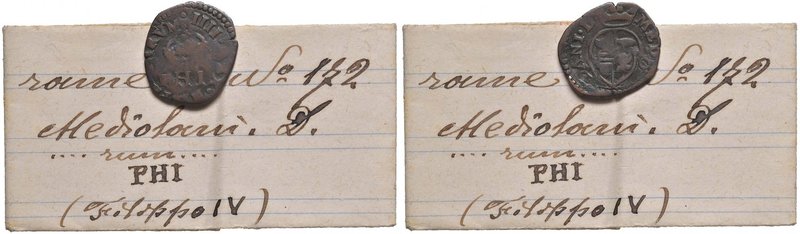 rame No 172
Mediolani. D.
.... rum....
PHI
(Filippo IV)
rame No 172
Mediolani. D.
.... rum....
PHI
(Filippo IV)